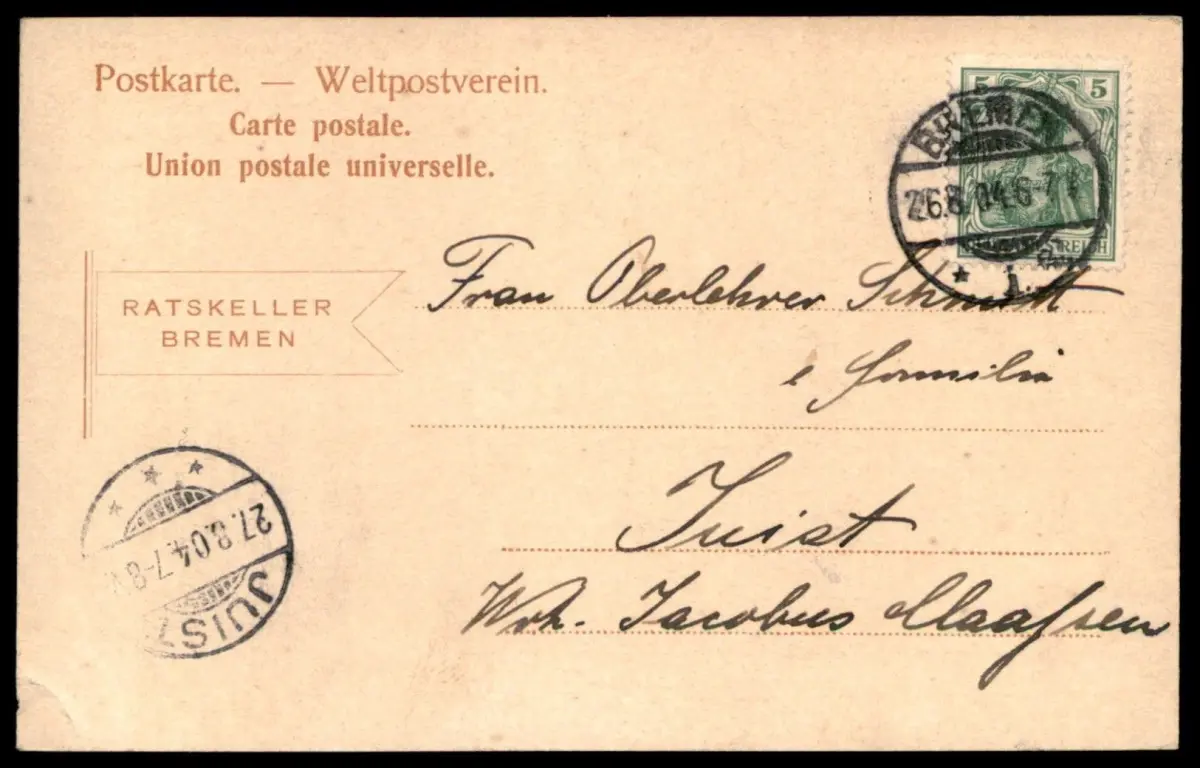 Postkarte. — Weltpostverein.
Carte postale.
Union postale universelle.
5 5
REICH
BREMEN
26.8.04.6-7
* 1.
RATSKELLER
BREMEN
Frau Oberlehrer Schmidt
e familia
Juist
Woh. Jacobus Maaßen
27.8.04.7-8
JUIST